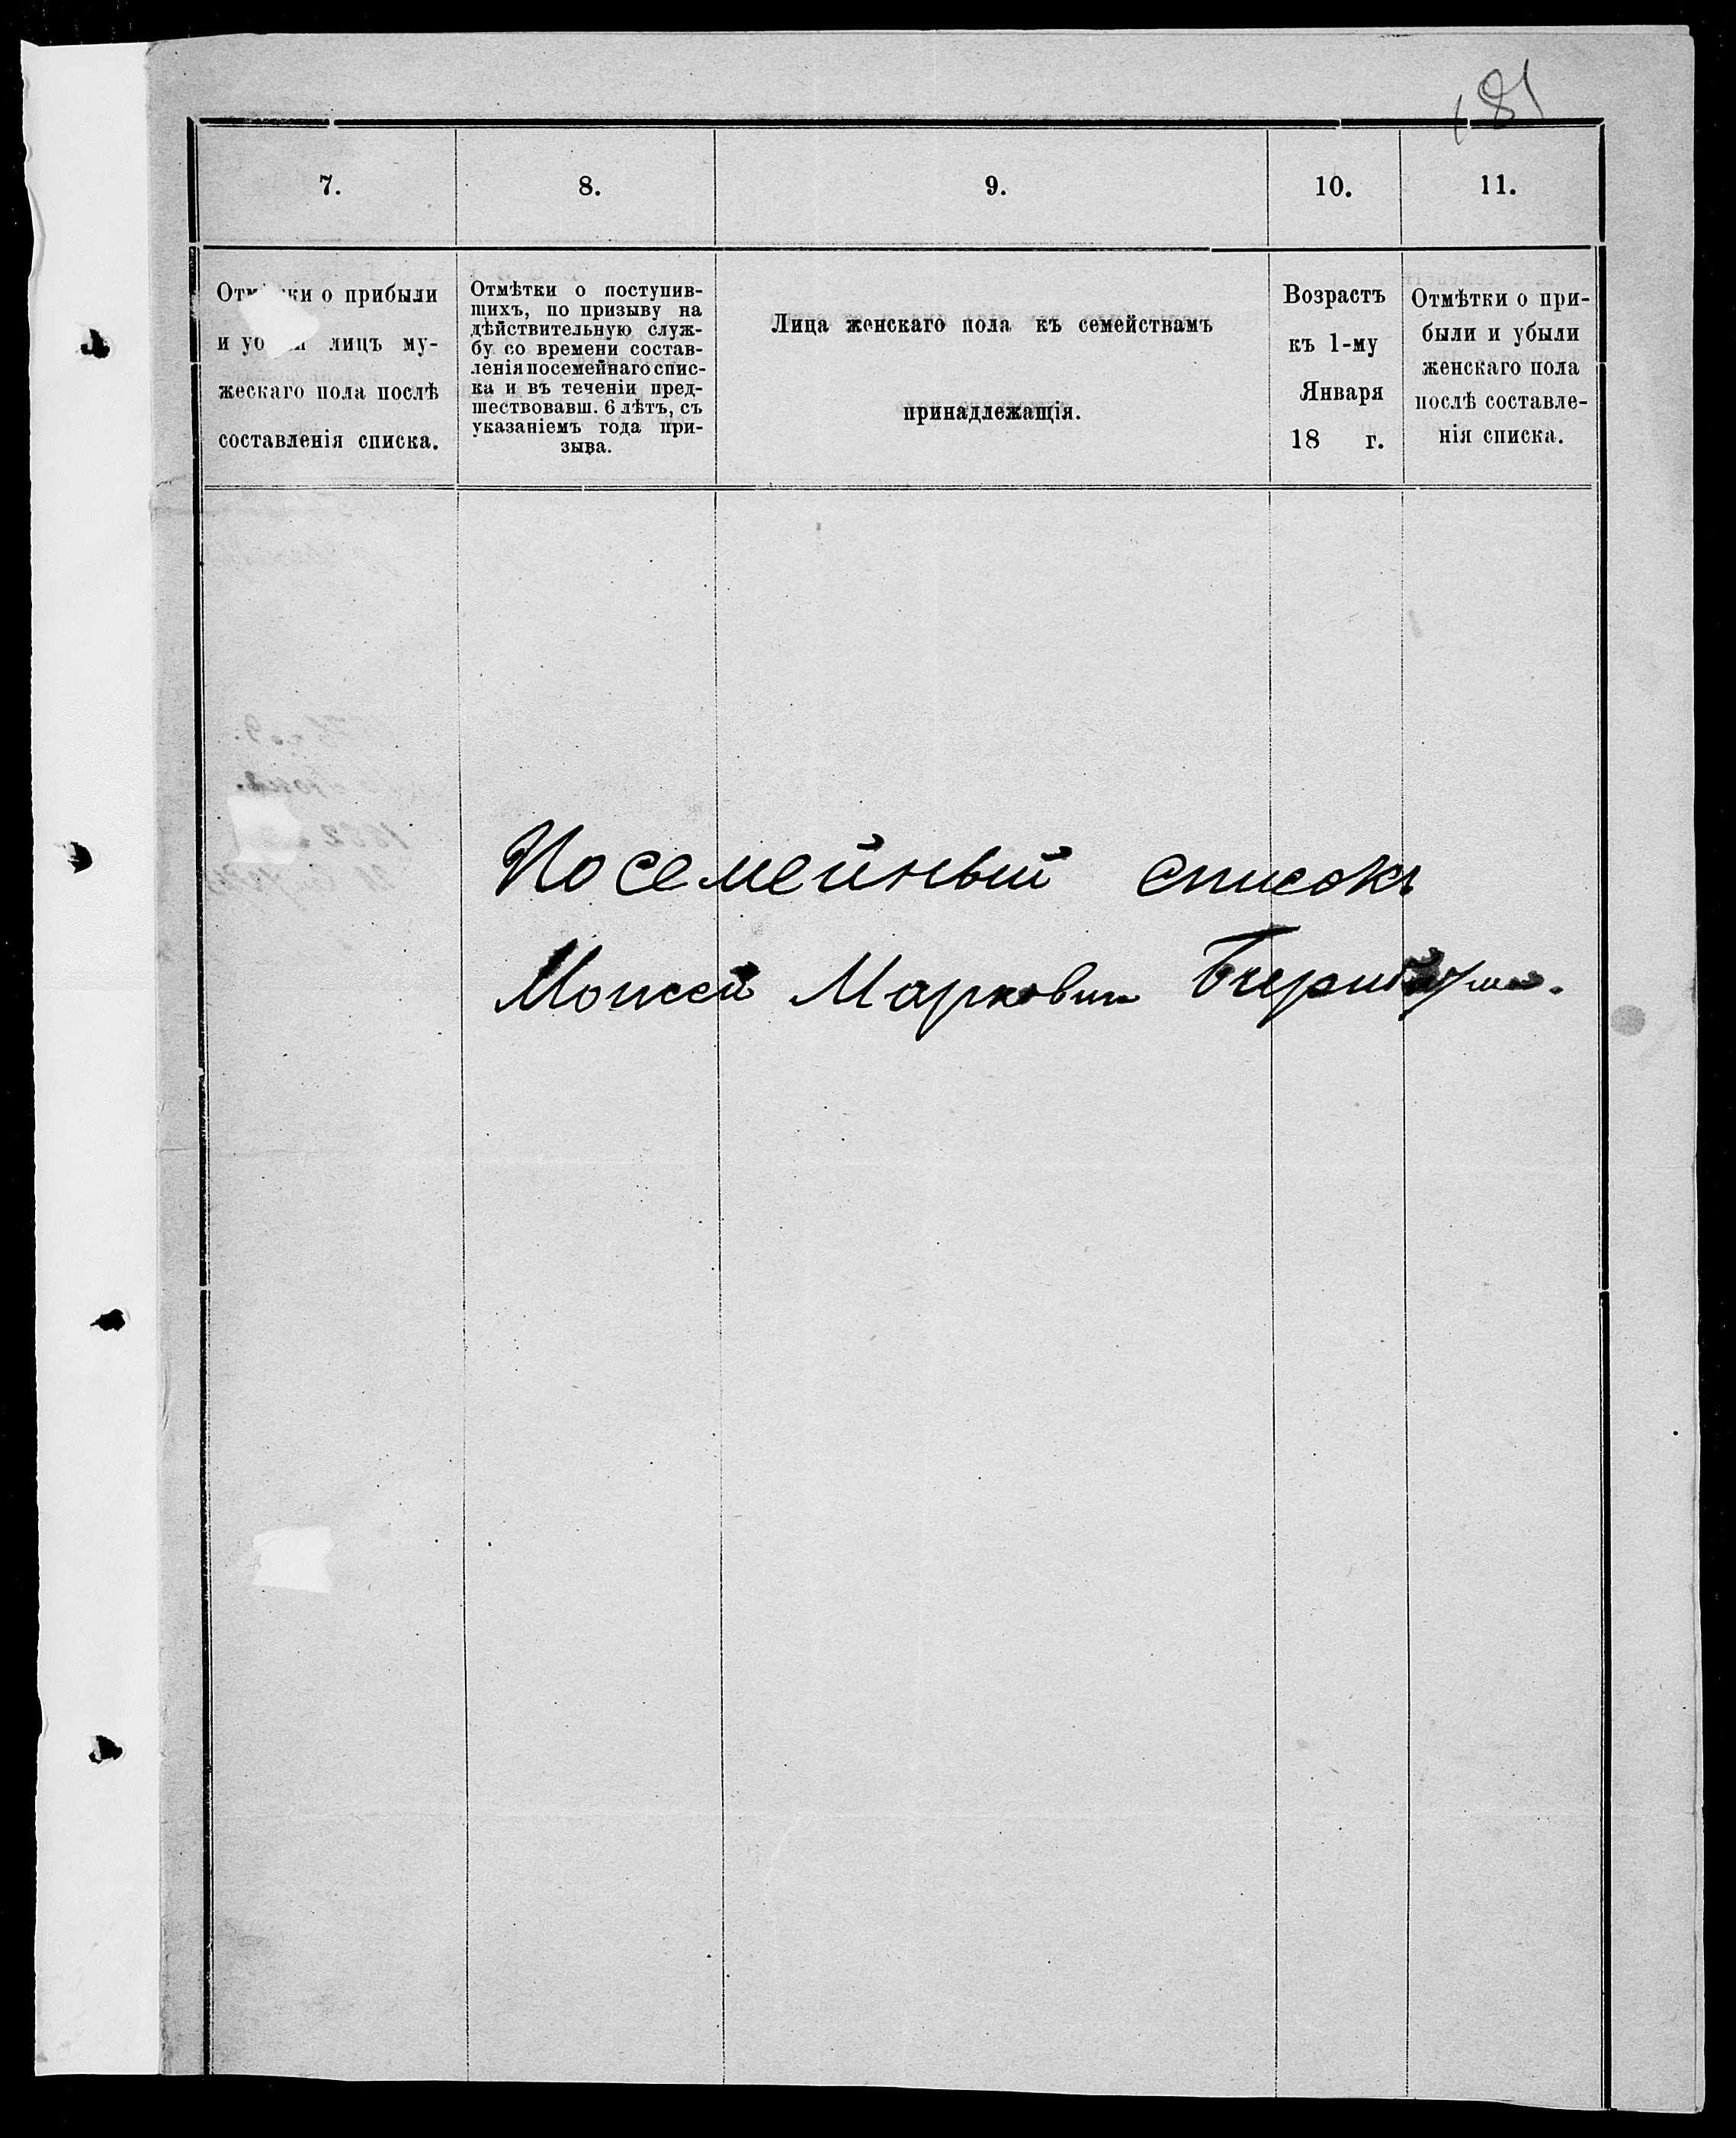 181
7.
8.
9.
10.
11.
о прибыли
и лицъ му-
жескаго пола послѣ
составленія списка.
Отмѣтки о поступив-
шихъ, по призыву на
дѣйствительную служ-
бу со времени состав-
ленія посемейнаго спис-
ка и въ теченіи пред-
шествовавш. 6 лѣтъ, съ
указаніемъ года при-
зыва.
Лица женскаго пола къ семействамъ
принадлежащія.
Возрастъ
къ 1-му
Января
18 г.
Отмѣтки о при-
были и убыли
женскаго пола
послѣ составле-
нія списка.
Посемейный списокъ
Моисей Маркович